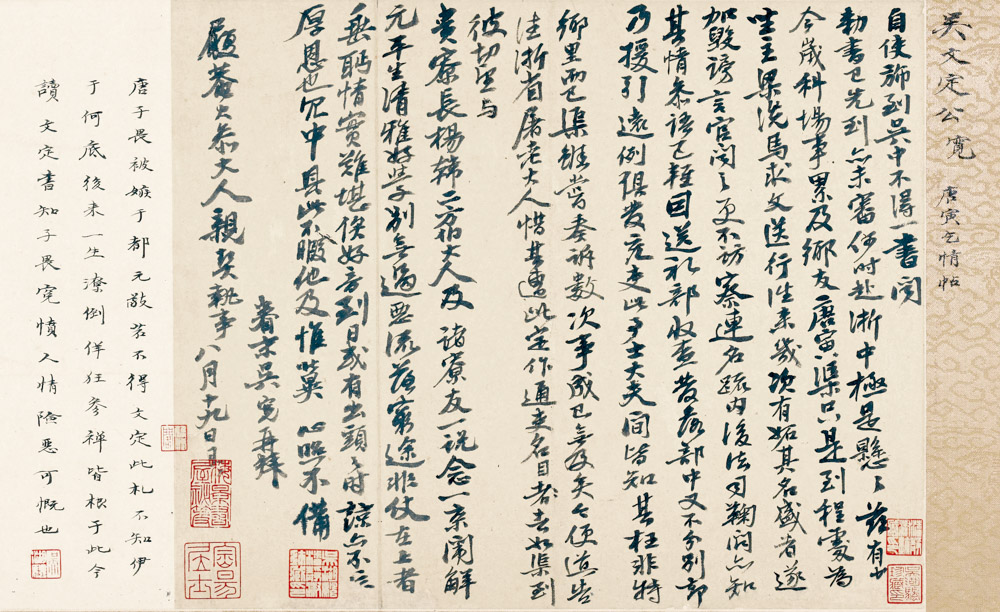 吳文定公寬 唐寅乞情帖
自使斾到吳中不得一書聞
勑書已先到亦未審何時赴浙中極是懸々茲有少
今歲科場事累及鄉友唐寅渠只是到程處爲
坐主梁洗馬求文送行往來幾次有妬其名盛者遂
加毀謗言官聞之更不訪察連名疏內後法司鞫問亦知
其情參語已輕因送禮部收查發落部中又不分別卻
乃援引遠例俱發充吏此事士大夫間皆知其枉非特
鄉里而已渠雖嘗奏訴數次事成已無及矣今便道告
往浙省屠老大人惜其遭此定作通吏名目者去如渠到
彼切望與
貴寮長楊韓二方伯大人及諸寮友一說念一京闈解
元平生清雅好學別無過惡流落窮途非仗在上者
垂眄情實難堪俟好音到日或有出頭之時諒亦不忘
厚恩也冗中具此不暇他及惟冀 心照不備
眷末吳寬再拜
履菴大參大人親契執事 八月十九日具
唐子畏被嫉于都元敬若不得文定此札不知伊
于何底後來一生潦倒佯狂參禪皆根于此今
讀文定書知子畏冤憤人情險惡可慨也